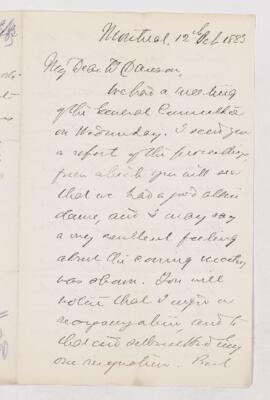 Montreal, 12th Feb 1883
My Dear Dr Dawson,
We had a meeting
of the General Committee
on Wednesday. I send you
a report of the proceedings,
from which you will see
that we had a good atten
dance, and I may say
a very excellent feeling
about the coming meeting
was shown. You will
notice that I urged a
reorganization, and to
that end submitted my
own resignation. But